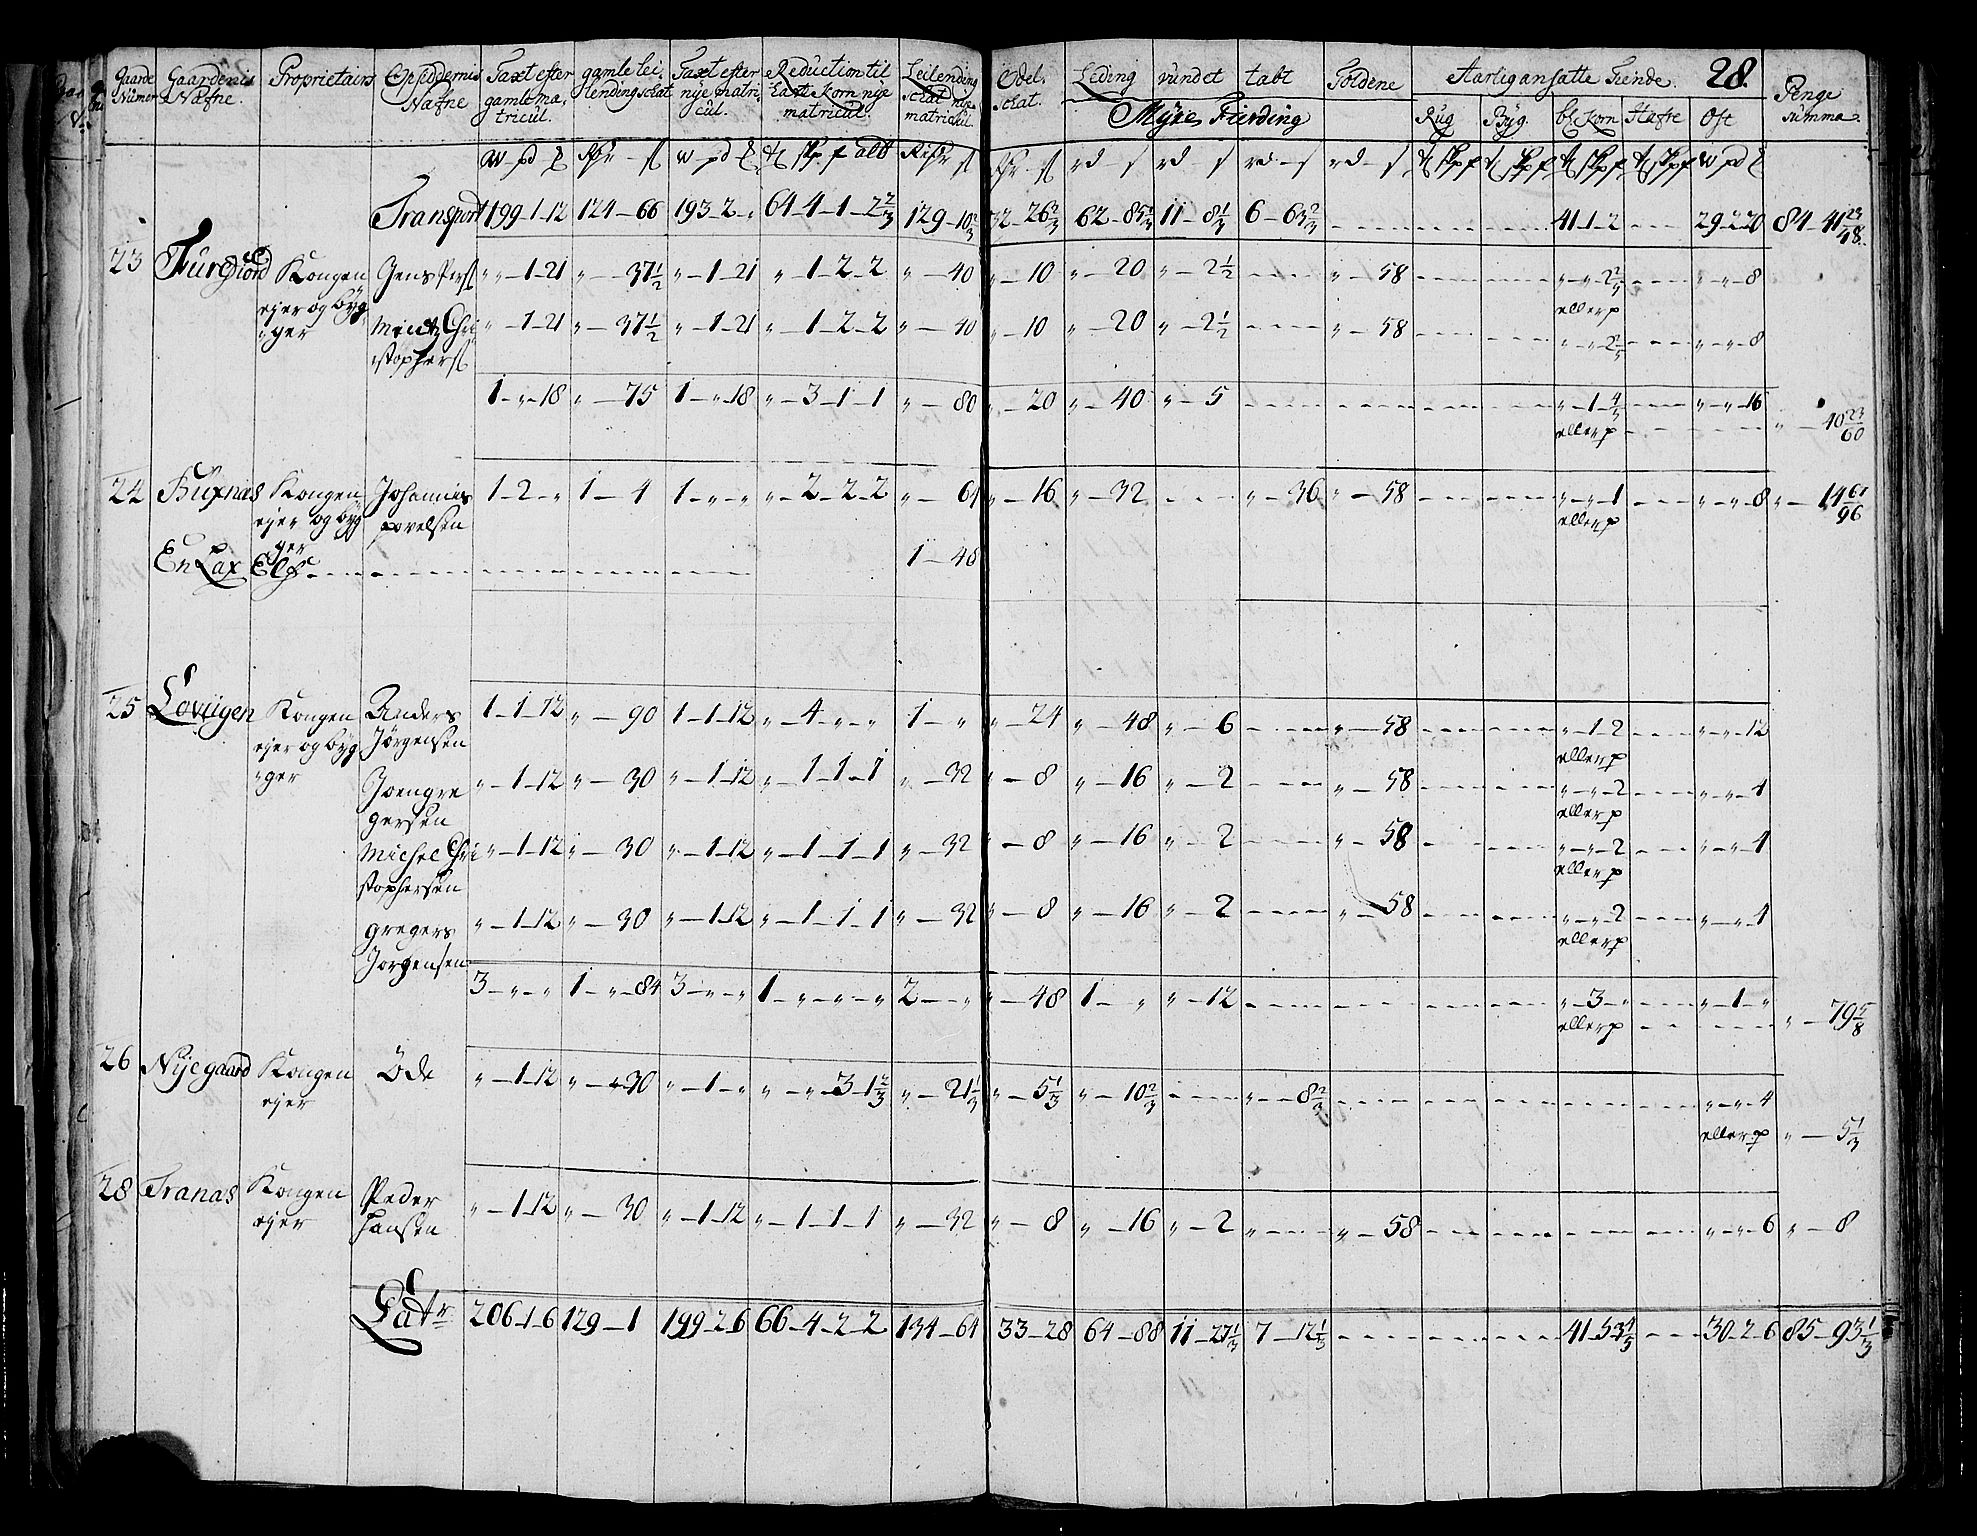 Gaarde Gaardenis Proprietairs Opsiddernis Taxt efter gamle lei- Taxt efter Reduction til Leilending Odel- Leding vundet tabt Foldene Aarlig ansatte Tiende 28. Penge
Numer Nafne. Nafne gamle ma- lendingschat nye matri- Last Korn nye schat nye schat. Myre Fierding Rug Byg. bl Korn Hafre Ost summa
tricul. cul. matricul. matricul.
Transport 199-1-12 124-66 193-2-" 64-4-1-2 2/3 129-10 2/3 32-26 2/3 62-85 1/3 11-8 1/3 6-63 2/3 41-1-2 29-2-20 84-41 23/48
23 Kongen Jens Pers " "-1-21 "-37 1/2 "-1-21 "-1-2-2 "-40 "-10 "-20 "-2 1/2 "-58 "-"-2 2/5 "-"-8
ejer og byg eller p
ger Christophers "-1-21 "-37 1/2 "-1-21 "-1-2-2 "-40 "-10 "-20 "-2 1/2 "-58 "-"-2 2/5 "-"-8
1-"-18 "-75 1-"-18 "-3-1-1 "-80 "-20 "-40 "-5 "-1-4/5 "-"-16
eller p "-40 23/60
24 Buxnæs Kongen Johannis 1-2-" 1-4 1-"-" "-2-2-2 "-64 "-16 "-32 "-36 "-58 "-"-1 "-"-8 "-14 61/96
ejer og byg povelsen eller p
ger
En Lax Elf 1-48
25 Lovugen Kongen Anders 1-1-12 "-90 1-1-12 "-4-"-" 1-" "-24 "-48 "-6 "-58 "-1-2 "-"-12
ejer og byg Jørgensen eller p
ger Joen gre "-1-12 "-30 "-1-12 "-1-1-1 "-32 "-8 "-16 "-2 "-58 "-"-2 "-"-4
gersen eller p
Michel Chri "-1-12 "-30 "-1-12 "-1-1-1 "-32 "-8 "-16 "-2 "-58 "-"-2 "-"-4
stophersen eller p
gregers "-1-12 "-30 "-1-12 "-1-1-1 "-32 "-8 "-16 "-2 "-58 "-"-2 "-"-4
Jorgensen eller p
3-"-" 1-"-84 3-"-" 1-"-"-"-" 2-" "-48 1-" "-12 "-3-" "-1-"
eller p "-79 5/8
26 Nijegaard Kongen Öde "-1-12 "-30 "-1-" "-"-3-1 2/3 "-21 1/3 "-5 1/3 "-10 2/3 "-8 2/3 "-"-4
ejer eller p "-5 1/3
28 Tranas Kongen Peder "-1-12 "-30 "-1-12 "-1-1-1 "-32 "-8 "-16 "-2 "-58 "-"-6 "-8
ejer Hansen
Latr 206-1-6 129-1 199-2-6 66-4-2-2 134-64 33-28 64-88 11-27 1/3 7-12 1/3 30-2-6 85-93 1/3